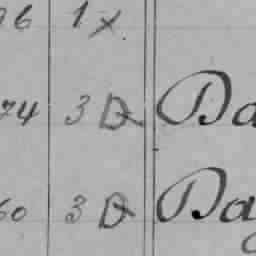 96 1 x
74 3 D Da
60 3 D Day